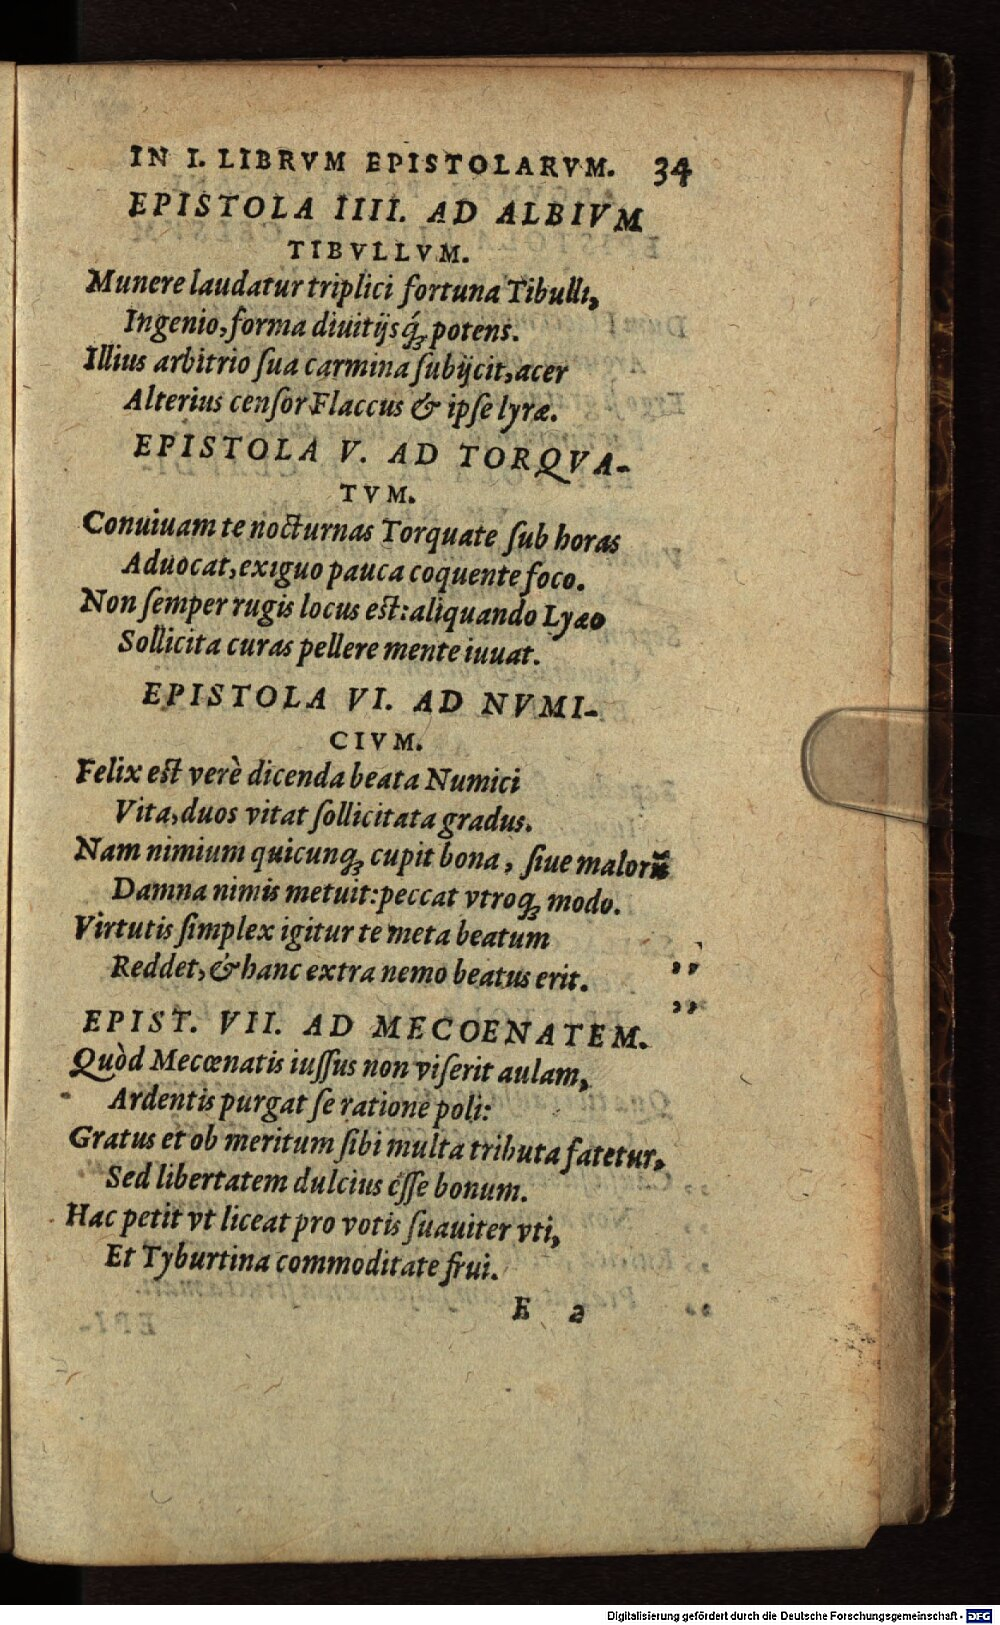 IN I. LIBRVM EPISTOLARVM. 34
EPISTOLA IIII. AD ALBIVM
TIBVLLVM.
Munere laudatur triplici fortuna Tibulli,
Ingenio, forma diuitijsq́; potens.
Illius arbitrio ſua carmina ſubijcit, acer
Alterius cenſor Flaccus & ipſe lyræ.
EPISTOLA V. AD TORQVA-
TVM.
Conuiuam te nocturnas Torquate ſub horas
Aduocat, exiguo pauca coquente foco.
Non ſemper rugis locus eſt: aliquando Lyæo
Sollicita curas pellere mente iuuat.
EPISTOLA VI. AD NVMI-
CIVM.
Felix eſt verè dicenda beata Numici
Vita, duos vitat ſollicitata gradus.
Nam nimium quicunq; cupit bona, ſiue malorũ
Damna nimis metuit: peccat vtroq; modo.
Virtutis ſimplex igitur te meta beatum
Reddet, & hanc extra nemo beatus erit. ,,
,,
EPIST. VII. AD MECOENATEM.
Quòd Mecœnatis iuſſus non viſerit aulam,
Ardentis purgat ſe ratione poli:
Gratus et ob meritum ſibi multa tributa fatetur,
Sed libertatem dulcius eſſe bonum.
Hac petit vt liceat pro votis ſuauiter vti,
Et Tyburtina commoditate frui.
E 2
Digitalisierung gefördert durch die Deutsche Forschungsgemeinschaft - DFG